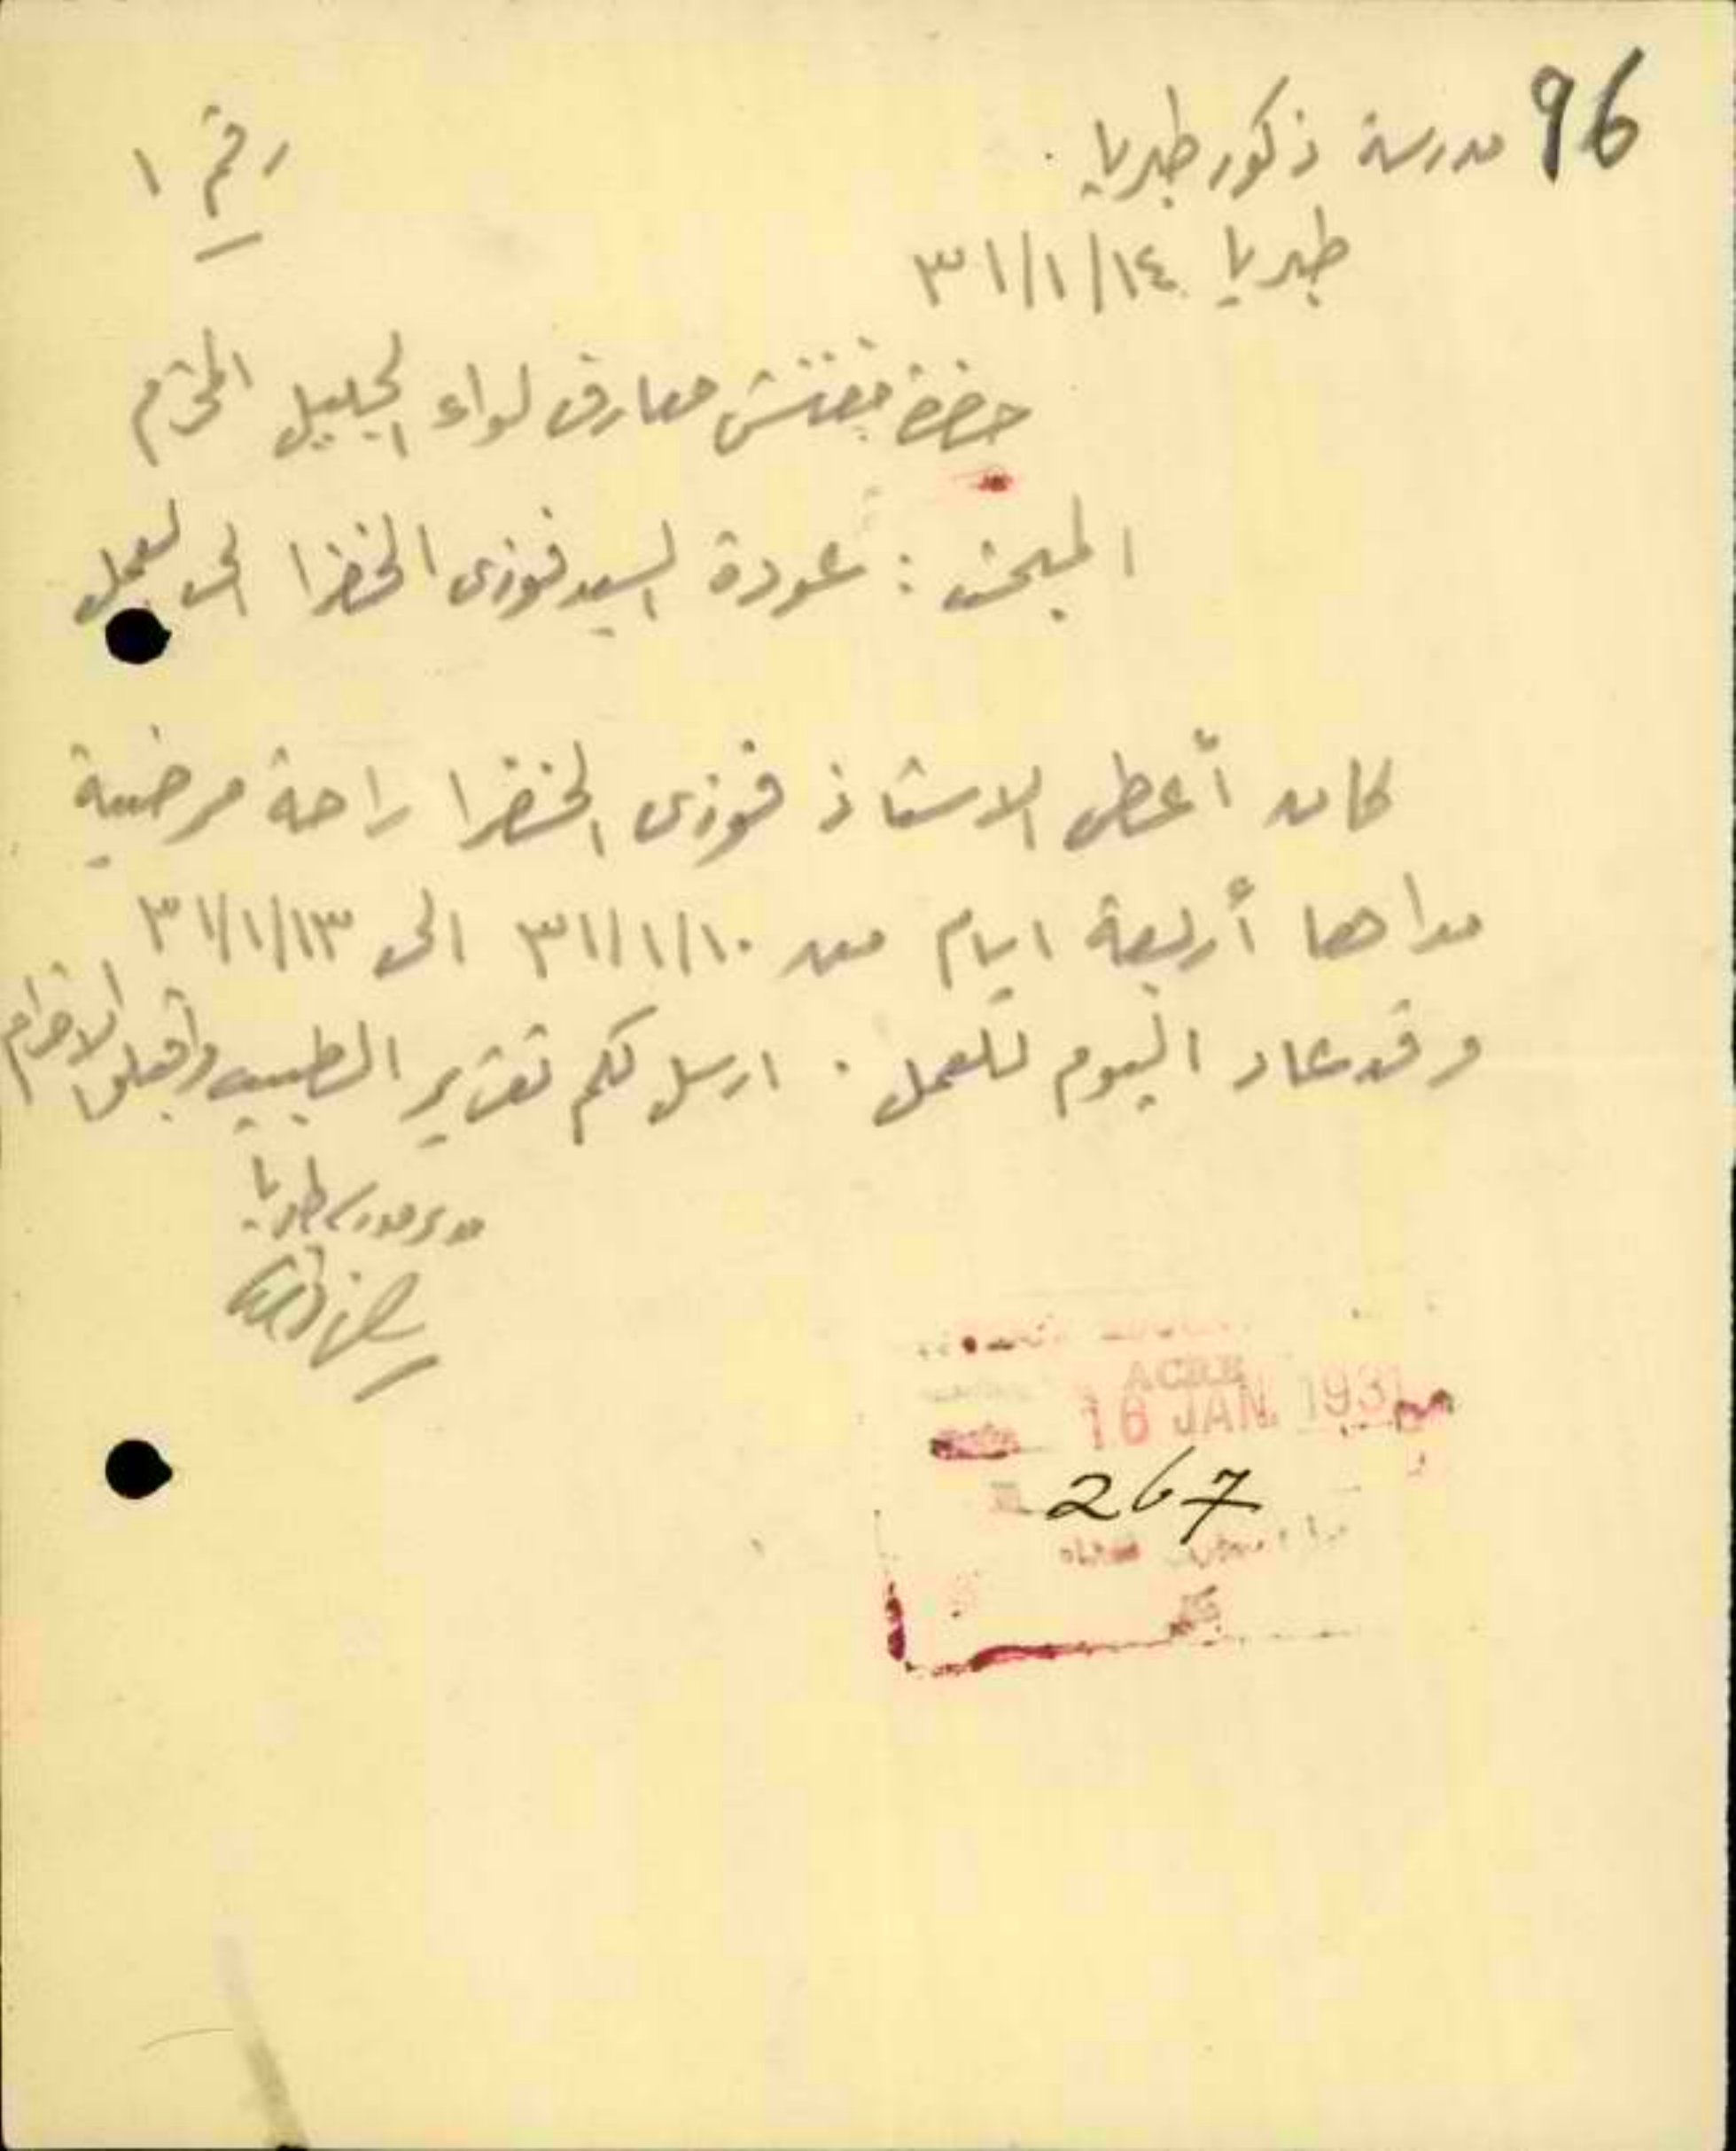 96
مدرسة ذكور طبريا . رقم ١
طبريا ٣١/١/١٤
حضرة مفتش معارف لواء الجليل المحترم
المبحث : عودة السيد فوزي الخضرا الى العمل
كان أعطي الاستاذ فوزي الخضرا راحة مرضية
مداها أربعة ايام من ٣١/١/١٠ الى ٣١/١/١٣
وقد عاد اليوم للعمل . ارسل لكم تقرير الطبيب واقبلوا الاحترام
مدير مدرسة طبريا
ACRE
16 JAN. 1931
267